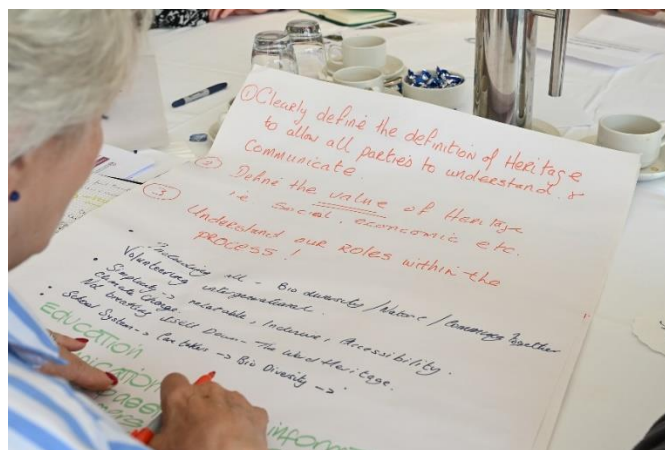 ① Clearly define the definition of Heritage
to allow all parties to understand &
communicate.
② Define the value of Heritage
i.e. social, economic etc.
③ Understand our roles within the
process!
• Including all, Biodiversity / Nature / Community Together
Volunteering intergenerational.
• Simplicity → relatable, Inclusive, Accessibility.
Climate Change.
Not breaking itself Down - The word Heritage.
• School System →  → Bio Diversity →
EDUCATION